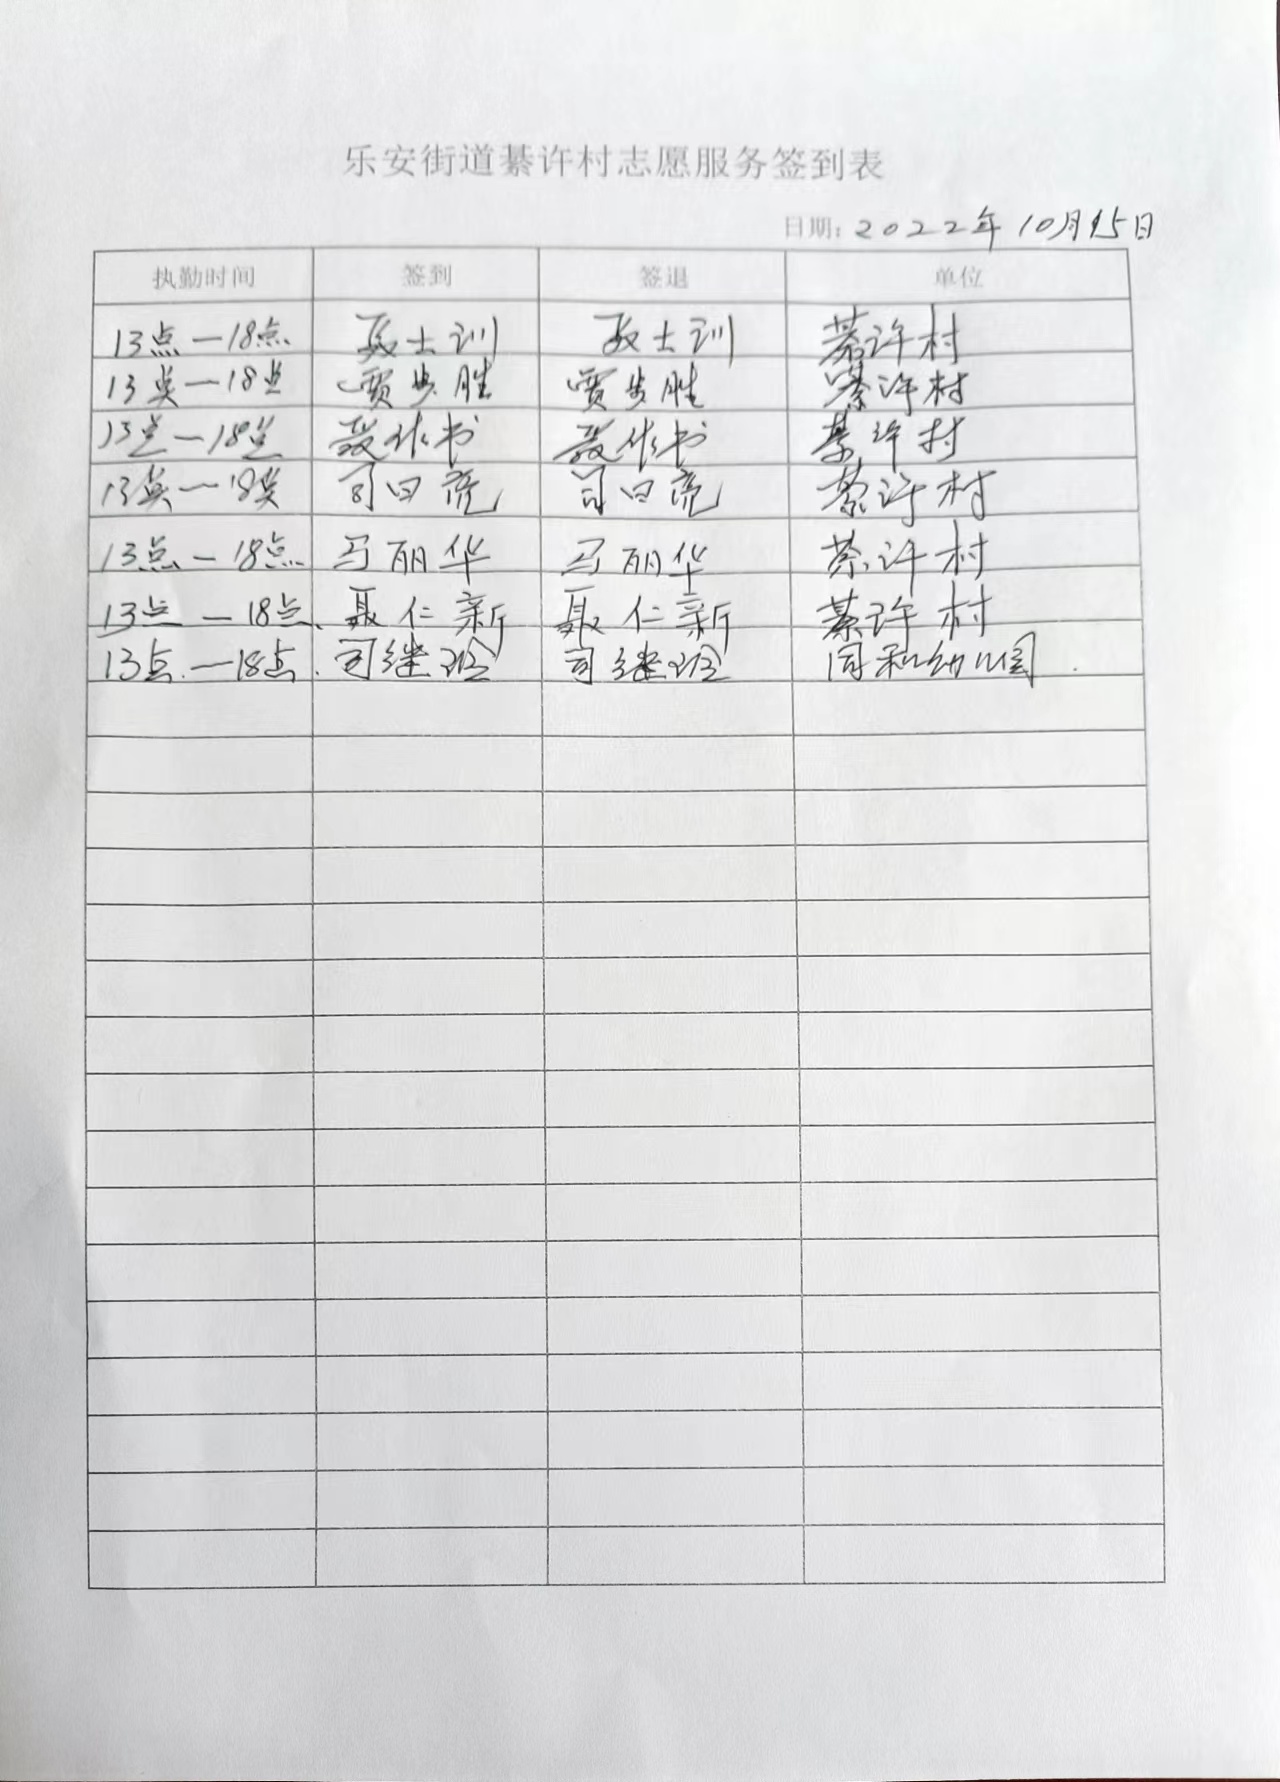 乐安街道綦许村志愿服务签到表
日期：2022年10月15日
执勤时间 签到 签退 单位
13点—18点 士训 士训 綦许村
13点—18点 贾步胜 贾步胜 綦许村
13点—18点 聂作书 聂作书 綦许村
13点—18点 司曰亮 司曰亮 綦许村
13点—18点 马丽华 马丽华 綦许村
13点—18点 聂仁新 聂仁新 綦许村
13点—18点 司继 司继 同和幼儿园